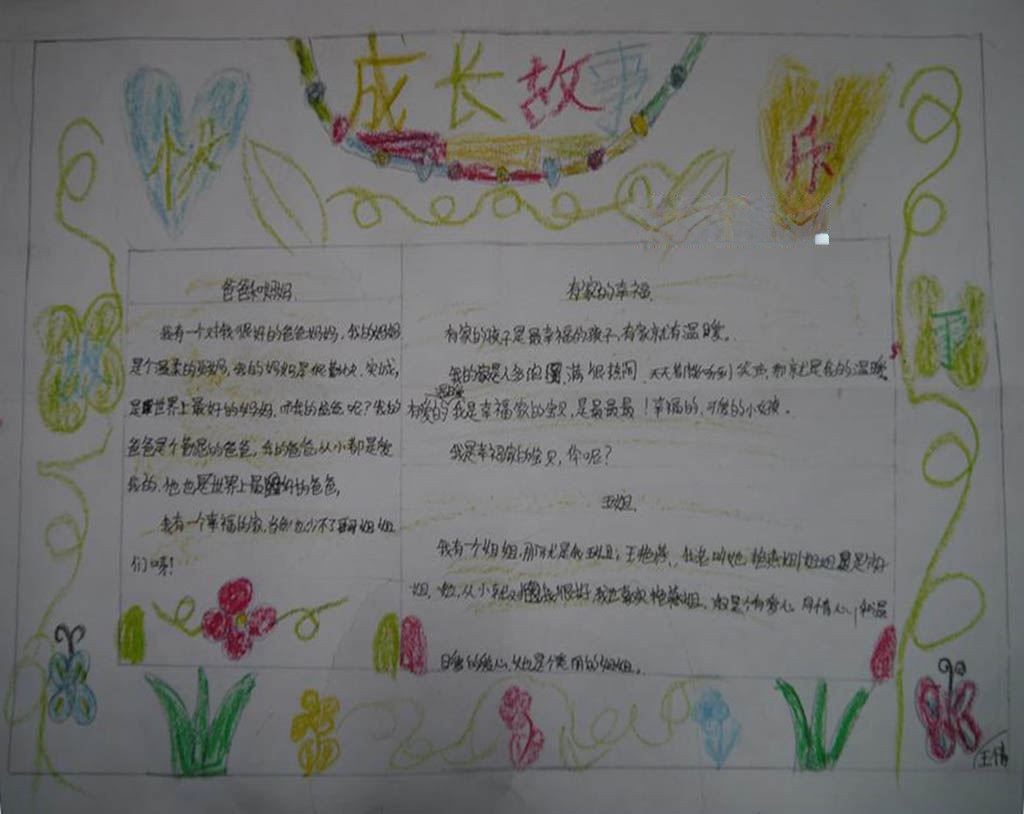 成长故事
快
乐
爸爸和妈妈
我有一个对我很好的爸爸妈妈,我的妈妈
是个温柔的妈妈,我的妈妈是很勤快、实诚,
是世界上最好的妈妈,而我的爸爸呢?我的
爸爸是个爸爸,我的爸爸从小都是爱
我的,他也是世界上最好的爸爸,
我有一个幸福的家,当然也少不了姐姐
们呀!
有家的幸福
有家的孩子是最幸福的孩子,有家就有温暖。
我的家是人多的圆满很热闹,天天都能听到笑声,那就是我的温暖
有爱的温暖我是幸福家的宝贝,是最最最!幸福的,可爱的小女孩。
我是幸福家的宝贝,你呢?
王姐
我有一个姐姐,那就是我王姐:王艳燕,
姐,从小就对我很好,我也喜欢艳燕姐,她是个有爱心
的爱心,她也是个善良的姐姐。
王倩